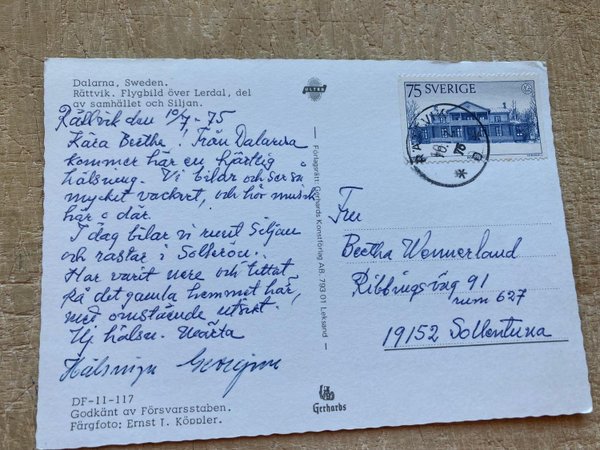 Dalarna, Sweden.
Rättvik. Flygbild över Lerdal, del
av samhället och Siljan.
ULTRA
Rättvik den 10/7-75
Kära Berthe! Från Dalarna
kommer här en hjärtlig
hälsning. Vi bilar och ser så
mycket vackert, och hör musik
här o där.
I dag bilar vi runt Siljan
och rastar i Sollerön.
Har varit nere och tittat
på det gamla hemmet här,
med omstående utsikt.
Hj hälsn. Märta
Hälsningar
DF-11-117
Godkänt av Försvarsstaben.
Färgfoto: Ernst T. Köppler.
Förlagsrätt: Gerhards Konstförlag AB. 793 01 Leksand
Gerhards
75 SVERIGE
RÄTTVIK
10. 7. 75
Fru
Bertha Wennerland
Ribbingsväg 91
rum 627
19152 Sollentuna